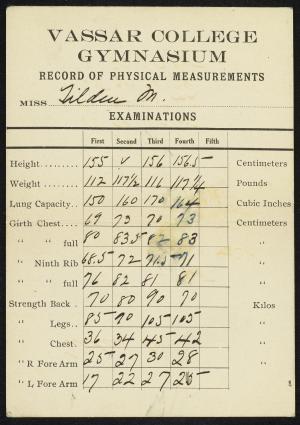 VASSAR COLLEGE
GYMNASIUM
RECORD OF PHYSICAL MEASUREMENTS
MISS Tilden M.
EXAMINATIONS
First Second Third Fourth Fifth
Height......... 155 v 156 156.5- Centimeters
Weight ......... 112 117½ 116 117¼ Pounds
Lung Capacity.. 150 160 170 164 Cubic Inches
Girth Chest.... 69 73 70 73 Centimeters
" " full 80 83.5 82 83 "
" Ninth Rib 68.5 72 71.5 71 "
" " full 76 82 81 81 "
Strength Back . 70 80 90 70 Kilos
" Legs.. 85 90 105 105 "
" Chest. 36 34 45 42 "
" R Fore Arm 25 27 30 28 "
" L Fore Arm 17 22 27 "